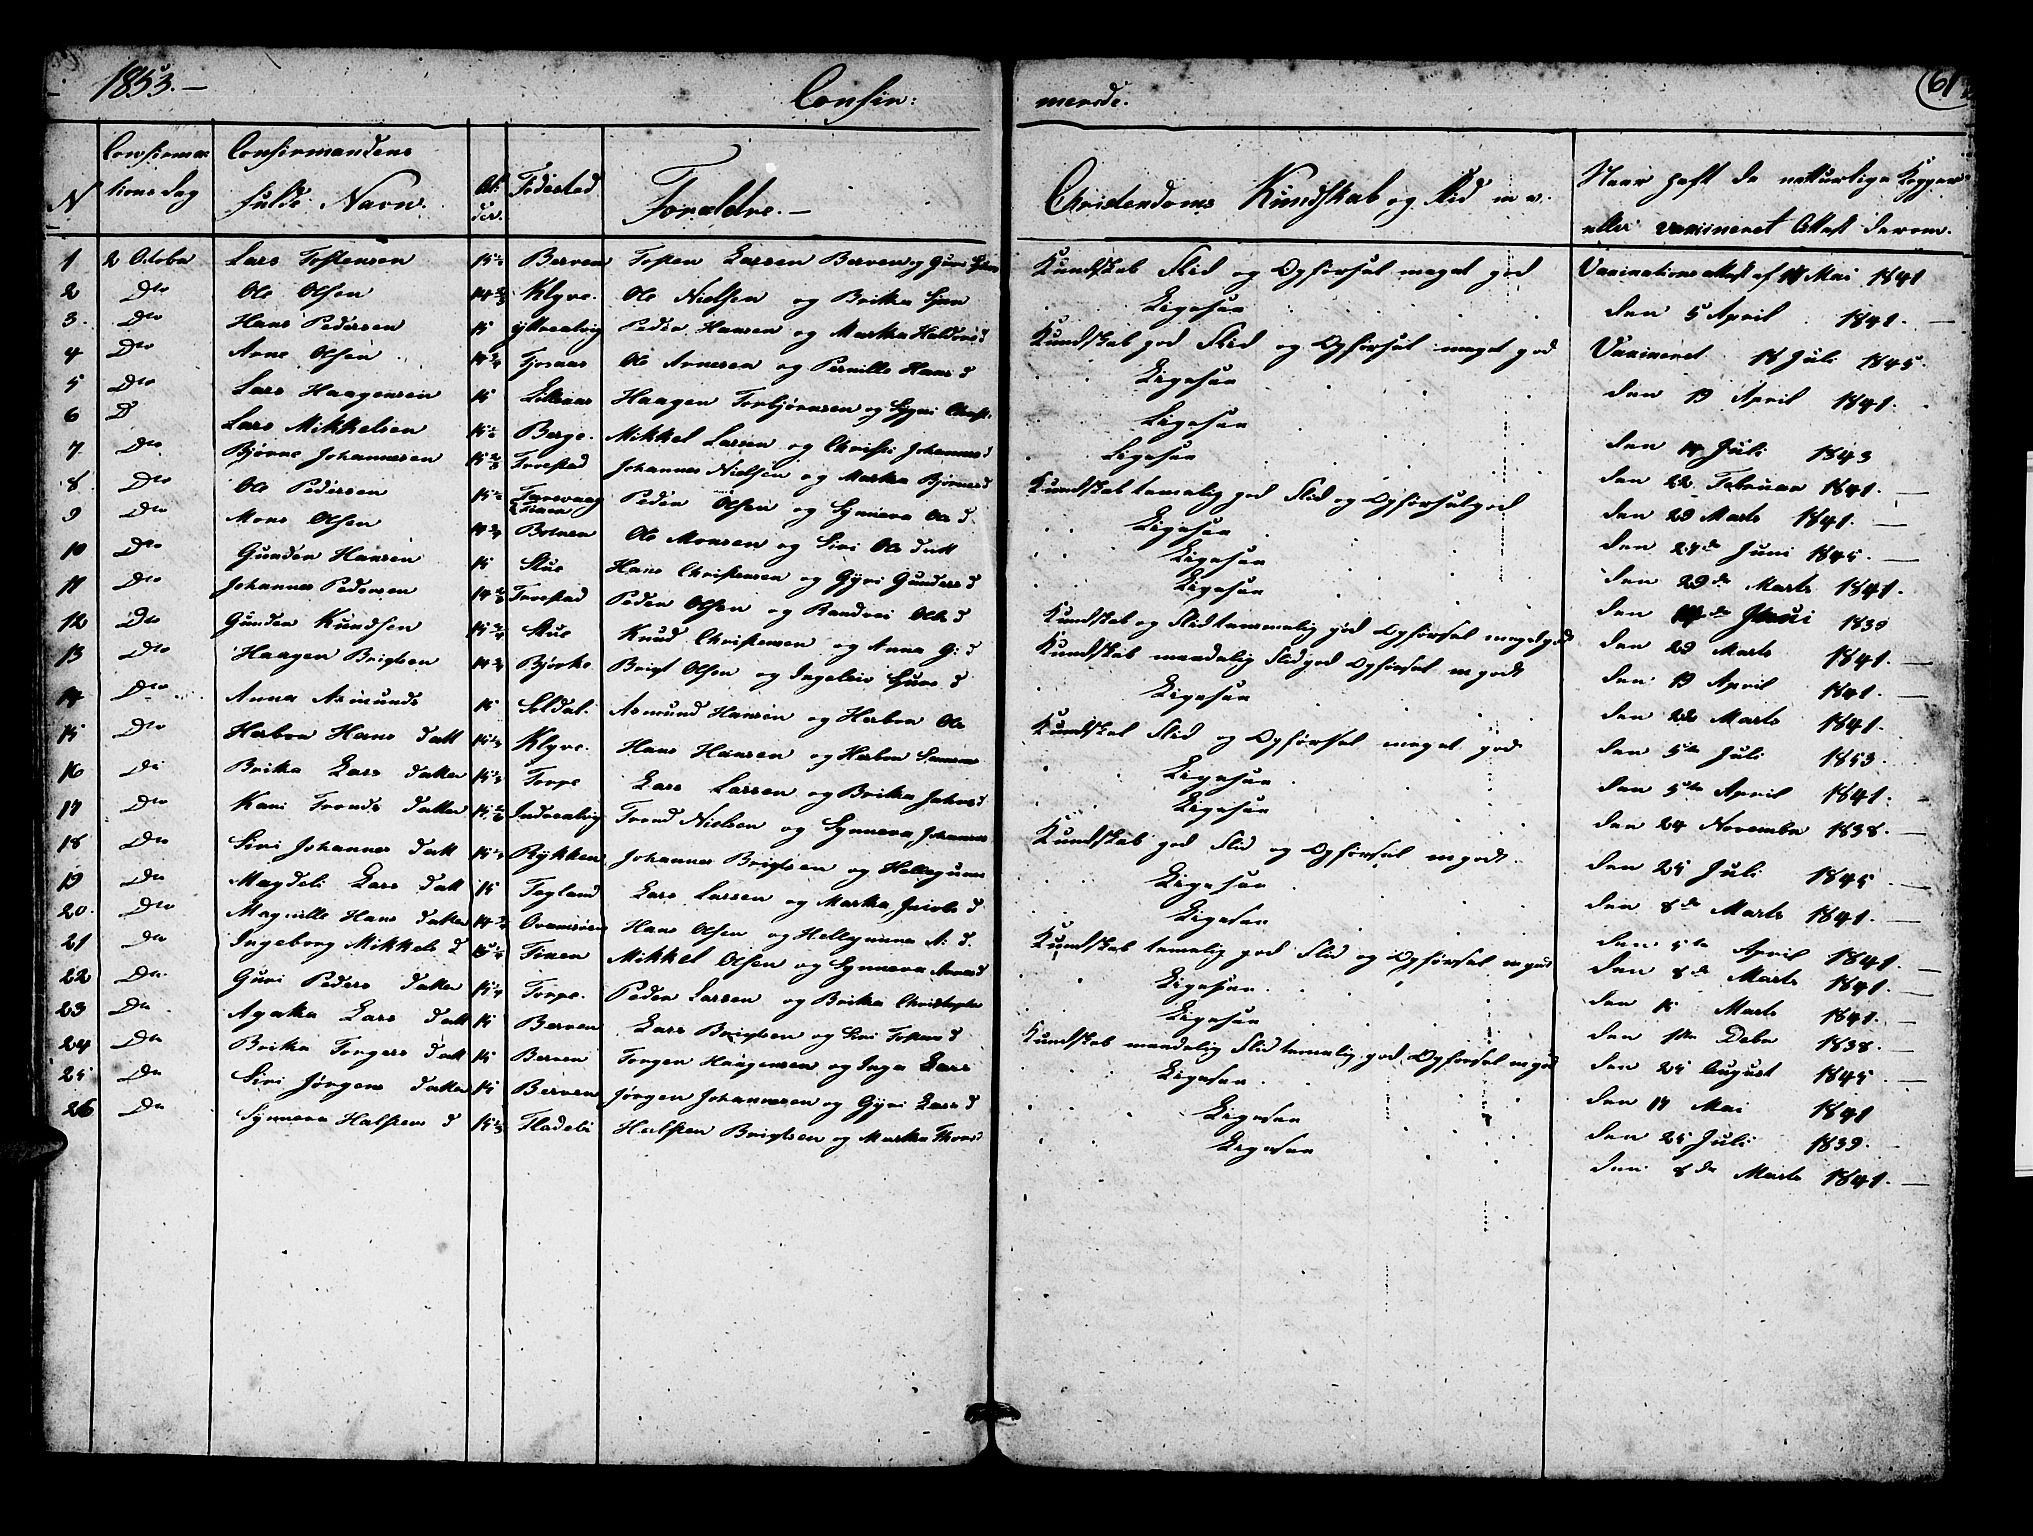 1853. —
Confir:
merede.
61
N
Confirma
tions dag
Confirmandens
fulde Navn.
Al
der.
Fødested
Forældre. —
Christendoms Kundskab og Flid m v.
Naar haft de naturlige Kopper
eller vaccineret Attest derom.
1 2 October Lars Tostensen 15½ Berven Tosten Larsen Berven og Guri Kundskab Flid og Opførsel meget god Vaccinations attest af Mai 1841
2 Dto Ole Olsen Klyve. Ole Nielsen og Brita Ligesaa den 5 April 1841. —
3. Dto Hans Pedersen 15 Peder Hansen og Martha Haldors d Kundskab god Flid og Opførsel meget god Vaccineret 18 Juli 1845.
4 Dto Arne Olsen 14¾ Ole Arnesen og Pernille Hans d Ligesaa den 19 April 1841.
5 Dto Lars Haagensen 15 Haagen Torbjørnsen og Ligesaa
6 D Lars Mikkelsen Berge. Mikkel Larsen og Christi Johannes d Ligesaa den Juli 1843
7. Dto Bjørne Johannesen Torestad Johannes Nielsen og Martha Bjørnes d den 22 Februar 1841. —
8 Dto Ole Pedersen Peder Olsen og Synneva Ole d. Kundskab temelig god Flid og Opførsel god den 29 Marts 1841. —
9 Dto Mons Olsen 14¾ Botnen Ole Monsen og Siri Ole datt Ligesaa den Juni 1845. —
10 Dto Gunder Hansen 15 Skue Hans Christensen og Gyri Gunders d Ligesaa den 29de Marts 1841.
11 Dto Johannes Pedersen Torestad Peder Olsen og Randvei Ole d Ligesaa den Juni 1839
12 Dto Gunder Knudsen Skue Knud Christensen og Anna G: d Kundskab og Flid temmelig god Opførsel meget god den 29 Marts 1841. —
13 Dto Haagen Brigtsen 14¾ Bjørke Brigt Olsen og Ingeleiv d Kundskab maadelig Flid god Opførsel m godt den 19 April 1841. —
14 Dto Anna Asmunds 15 Seldal. Asmund Hansen og Herbor Ole Ligesaa den 22 Marts 1841.
15 Dto Herbor Hans datt Klyve. Hans Hansen og Herbor Kundskab Flid og Opførsel meget god den 5te Juli 1853.
16 Do Brita Lars datter Torpe Lars Larsen og Brita Ligesaa den 5te April 1841.
17 Dto Kari Tronds datter Trond Nielsen og Synneva Johannes Ligesaa den 24 November 1838. —
18 Do Siri Johannes datt Rykken Johannes Brigtsen og Hellegunna Kundskab god Flid og Opførsel m godt. den 25 Juli 1845. —
19 Do Magdeli Lars datt 15 Lars Larsen og Martha Jacobs d Ligesaa den 8de Marts 1841. —
20. Dto Magnille Hans datter Hans Olsen og Hellegunna A: d. Ligesaa den 5te April 1841. —
21 Do Ingeborg Mikkels d Mikkel Olsen og Synneva Arnes d Kundskab temelig god Flid og Opførsel m god den 8de Marts 1841. —
22 Do Guri Peders datter Torpe. Peder Larsen og Brita Christophe Ligesaa den 15 Marts 1841. —
23 Do Agatha Lars datt 15 Berven Lars Brigtsen og Siri Tosten d Ligesaa den 1te Debr 1838. —
24 Do Brita Torgers datt 15 Berven Torger Haagensen og Inga Lars Kundskab maadelig Flid temelig god Opførsel m god den 25 August 1845. —
25 Do Siri Jørgens datter 15 Berven Jørgen Johannesen og Gyri Lars d Ligesaa den 17 Mai 1841
26 Do Synneva Halstens d Fladebø Halsten Brigtsen og Martha Thors d Ligesaa den 25 Juli 1839. —
Ligesaa den 8de Marts 1841. —